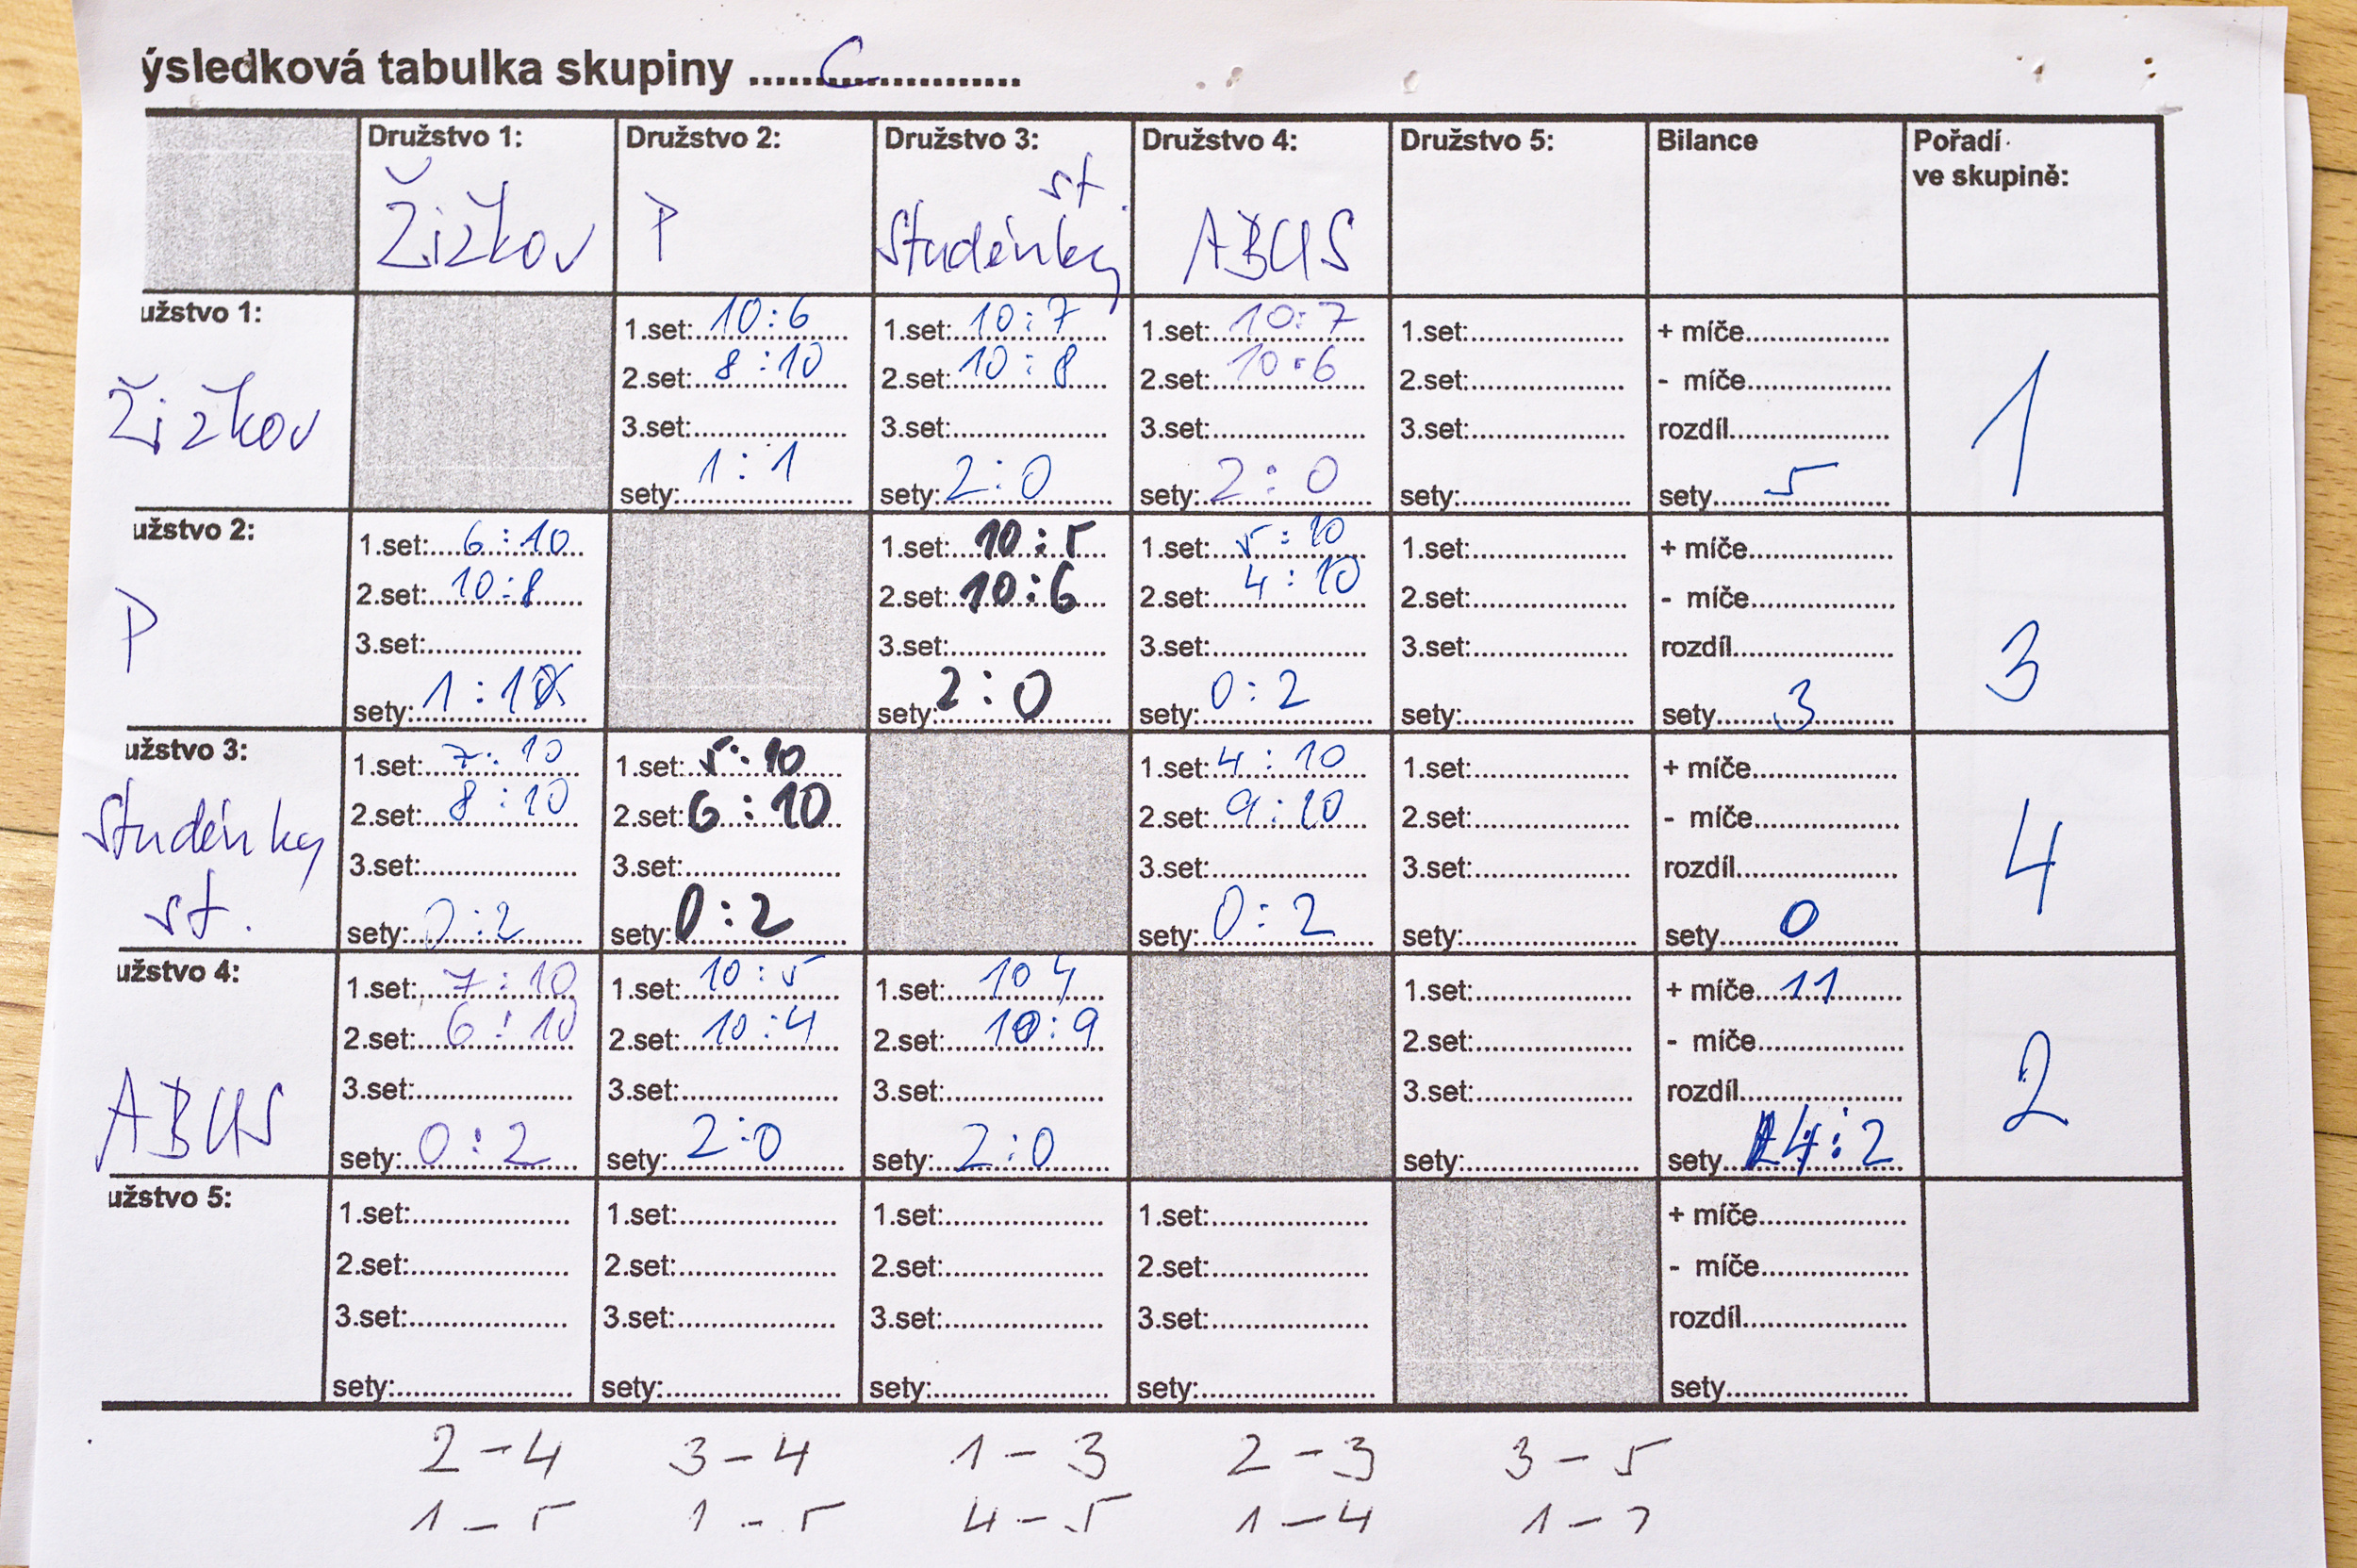 ýsledková tabulka skupiny ......C..............
Družstvo 1: Družstvo 2: Družstvo 3: Družstvo 4: Družstvo 5: Bilance Pořadí
ve skupině:
Žižkov P Studénky st. ABUS
užstvo 1:
Žižkov
1.set: 10:6 1.set: 10:7 1.set: 10:7 1.set: + míče
2.set: 8:10 2.set: 10:8 2.set: 10:6 2.set: - míče
3.set: 3.set: 3.set: 3.set: rozdíl
sety: 1:1 sety: 2:0 sety: 2:0 sety: sety 5
1
užstvo 2:
P
1.set: 6:10 1.set: 10:5 1.set: 5:10 1.set: + míče
2.set: 10:8 2.set: 10:6 2.set: 4:10 2.set: - míče
3.set: 3.set: 3.set: 3.set: rozdíl
sety: 1:1 sety: 2:0 sety: 0:2 sety: sety 3
3
užstvo 3:
Studénky
st.
1.set: 7:10 1.set: 5:10 1.set: 4:10 1.set: + míče
2.set: 8:10 2.set: 6:10 2.set: 9:10 2.set: - míče
3.set: 3.set: 3.set: 3.set: rozdíl
sety: 0:2 sety: 0:2 sety: 0:2 sety: sety 0
4
užstvo 4:
ABUS
1.set: 7:10 1.set: 10:5 1.set: 10 4 1.set: + míče 11
2.set: 6:10 2.set: 10:4 2.set: 10:9 2.set: - míče
3.set: 3.set: 3.set: 3.set: rozdíl
sety: 0:2 sety: 2:0 sety: 2:0 sety: sety 4:2
2
užstvo 5:
1.set: 1.set: 1.set: 1.set: + míče
2.set: 2.set: 2.set: 2.set: - míče
3.set: 3.set: 3.set: 3.set: rozdíl
sety: sety: sety: sety: sety
2-4 3-4 1-3 2-3 3-5
1-5 1-5 4-5 1-4 1-2